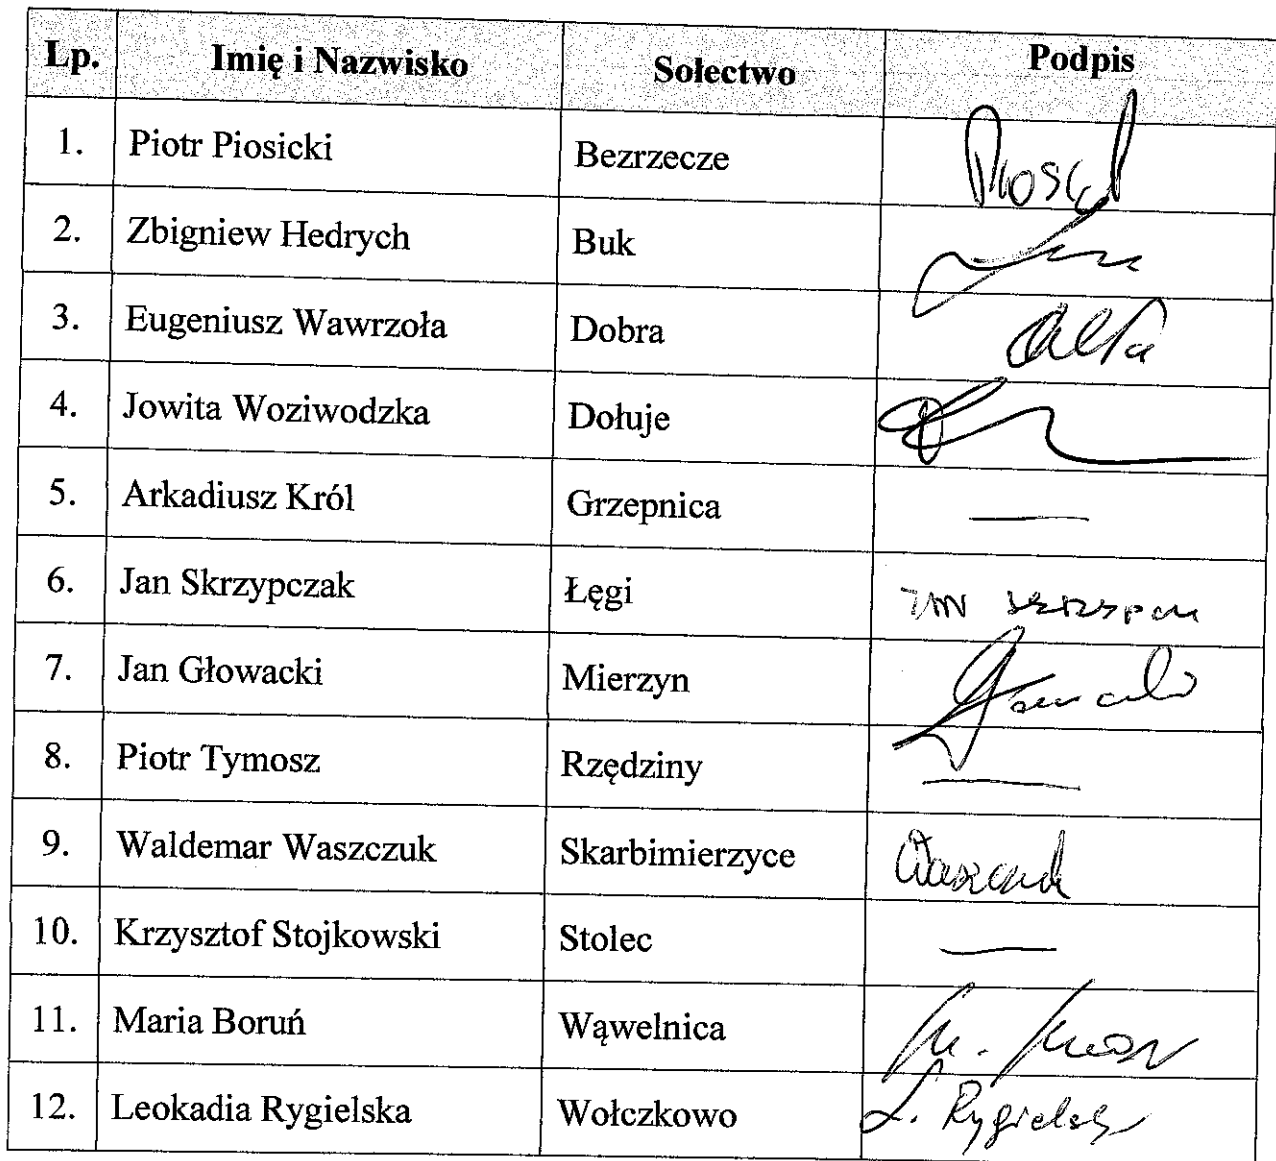 Lp. Imię i Nazwisko Sołectwo Podpis
1. Piotr Piosicki Bezrzecze
2. Zbigniew Hedrych Buk
3. Eugeniusz Wawrzoła Dobra
4. Jowita Woziwodzka Dołuje
5. Arkadiusz Król Grzepnica —
6. Jan Skrzypczak Łęgi
7. Jan Głowacki Mierzyn
8. Piotr Tymosz Rzędziny —
9. Waldemar Waszczuk Skarbimierzyce
10. Krzysztof Stojkowski Stolec —
11. Maria Boruń Wąwelnica
12. Leokadia Rygielska Wołczkowo L. Rygielska